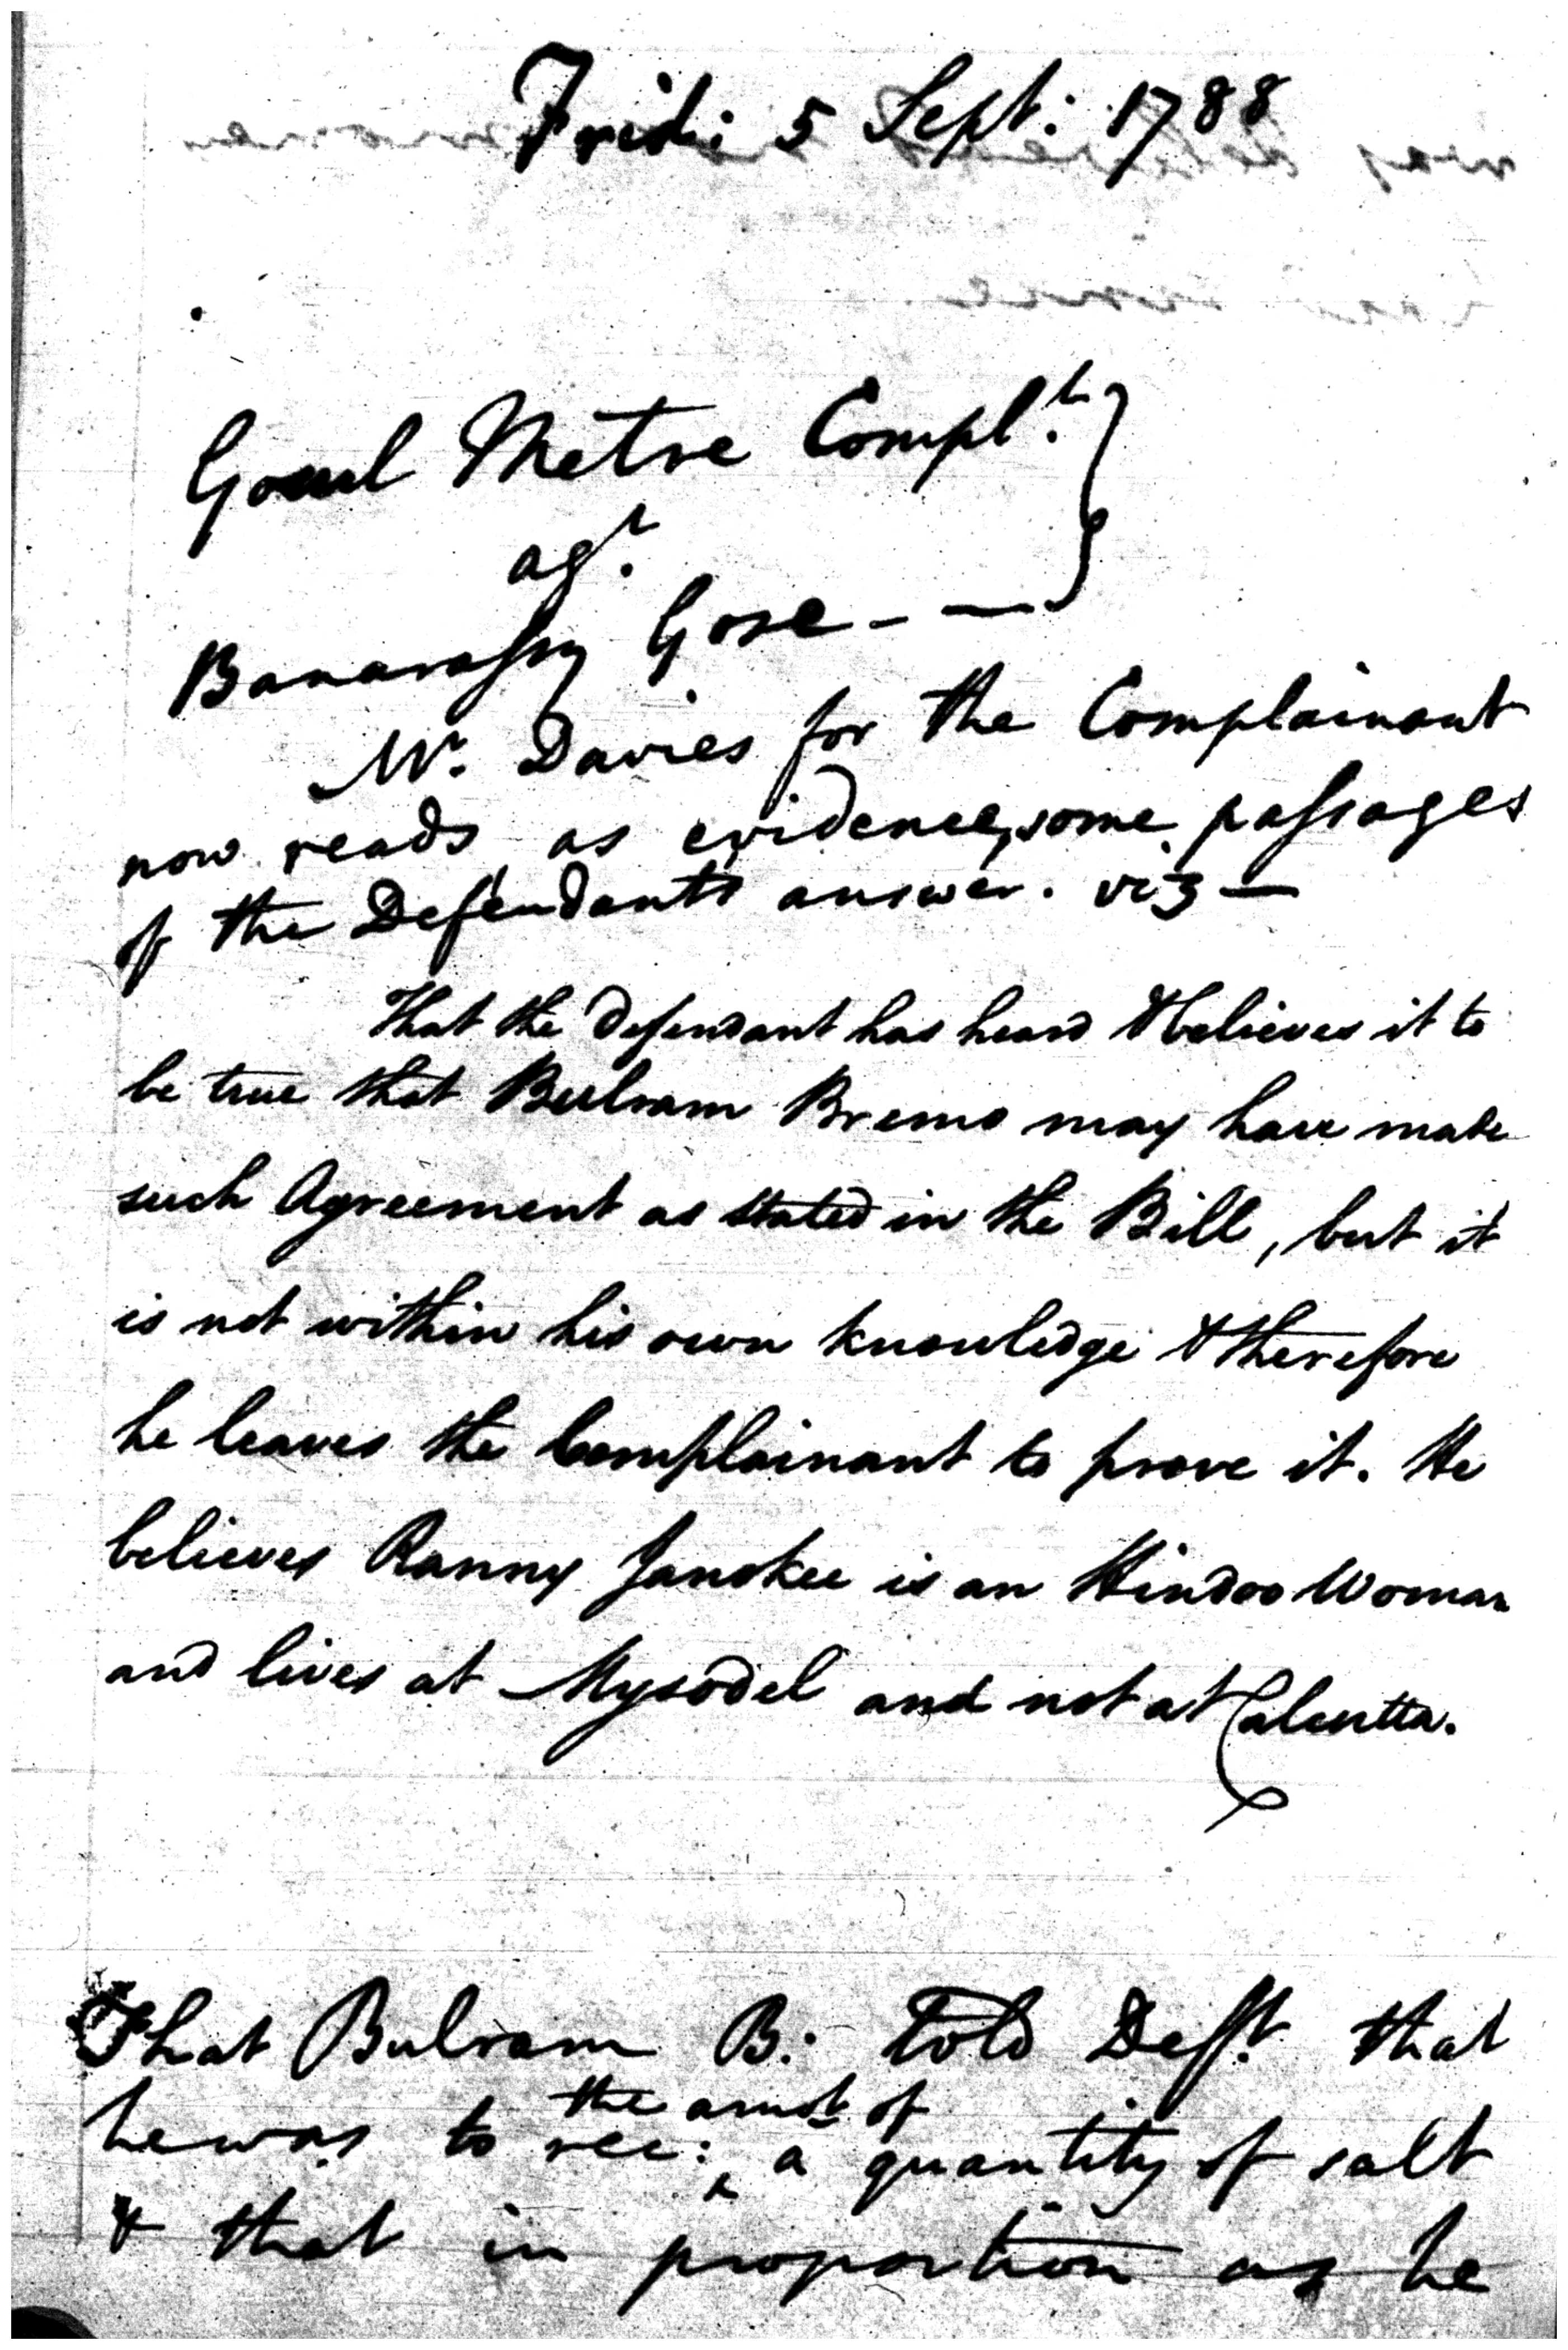 Frid: 5 Sept: 1788
Metre Compl.t
ag.t
Banarassy Gose - —
Mr. Davies for the Complainant
now reads as evidence, some passages
of the Defendants answer. viz —
That the Defendant has heard & believes it to
be true that Bulram Bremo may have made
such Agreement as stated in the Bill, but it
is not within his own knowledge & therefore
he leaves the Complainant to prove it. He
believes Ranny Janokee is an Hindoo Woman
and lives at Mysodel and not at Calcutta.
That Bulram B: told Deft. that
the amot of
he was to rec: ‸ a quantity of salt
& that in proportion as he